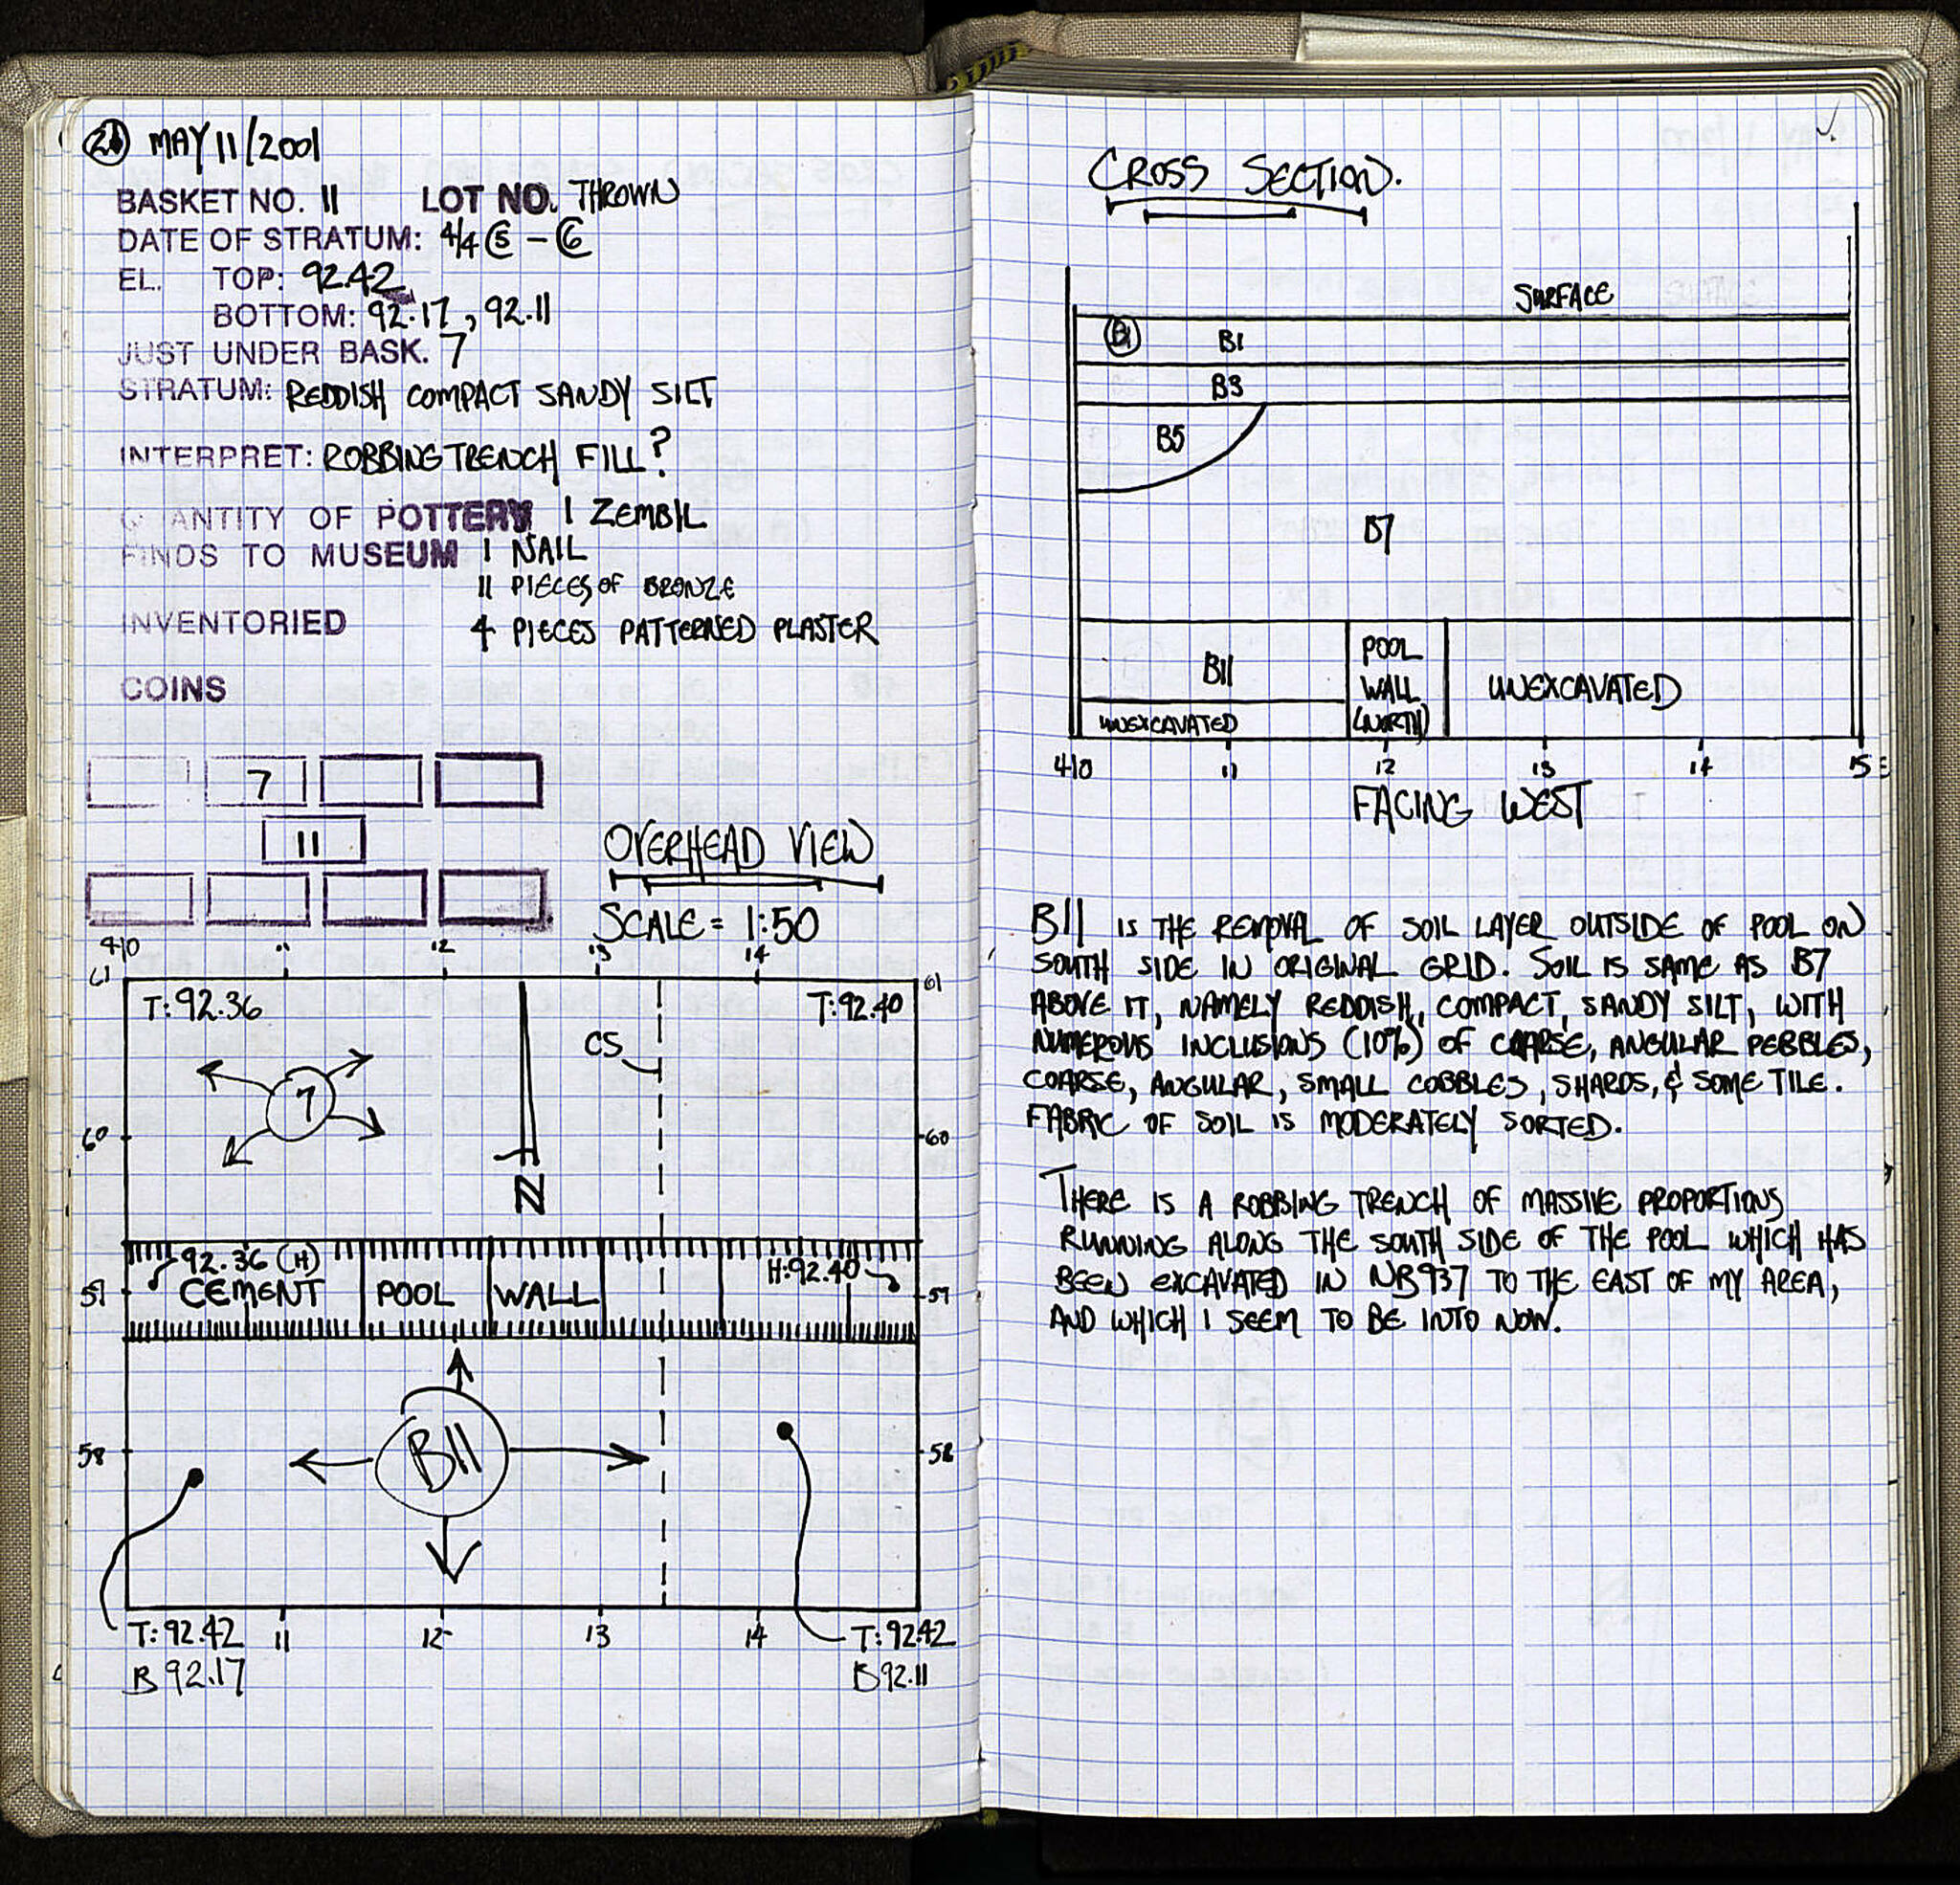 MAY 11/2001
BASKET NO. 11 LOT NO. THROWN
DATE OF STRATUM: 4/4 ⑤ – ⑥
EL. TOP: 92.42
BOTTOM: 92.17, 92.11
JUST UNDER BASK. 7
STRATUM: REDDISH COMPACT SANDY SILT
INTERPRET: ROBBING TRENCH FILL?
QUANTITY OF POTTERY 1 ZEMBIL
FINDS TO MUSEUM 1 NAIL
11 PIECES OF BRONZE
INVENTORIED 4 PIECES PATTERNED PLASTER
COINS
7
11
OVERHEAD VIEW
SCALE = 1:50
410 11 12 13 14
61 61
T: 92.36 T: 92.40
CS
7
60 60
N
92.36 (H) H: 92.40
59 CEMENT POOL WALL 59
B11
58 58
T: 92.42 11 12 13 14 T: 92.42
B 92.17 B 92.11
CROSS SECTION.
SURFACE
B1 B1
B3
B5
B7
B11 POOL WALL (NORTH) UNEXCAVATED
UNEXCAVATED
410 11 12 13 14 15
FACING WEST
B11 IS THE REMOVAL OF SOIL LAYER OUTSIDE OF POOL ON
SOUTH SIDE IN ORIGINAL GRID. SOIL IS SAME AS B7
ABOVE IT, NAMELY REDDISH, COMPACT, SANDY SILT, WITH
NUMEROUS INCLUSIONS (10%) OF COARSE, ANGULAR PEBBLES,
COARSE, ANGULAR, SMALL COBBLES, SHARDS, & SOME TILE.
FABRIC OF SOIL IS MODERATELY SORTED.
THERE IS A ROBBING TRENCH OF MASSIVE PROPORTIONS
RUNNING ALONG THE SOUTH SIDE OF THE POOL WHICH HAS
BEEN EXCAVATED IN NB937 TO THE EAST OF MY AREA,
AND WHICH I SEEM TO BE INTO NOW.